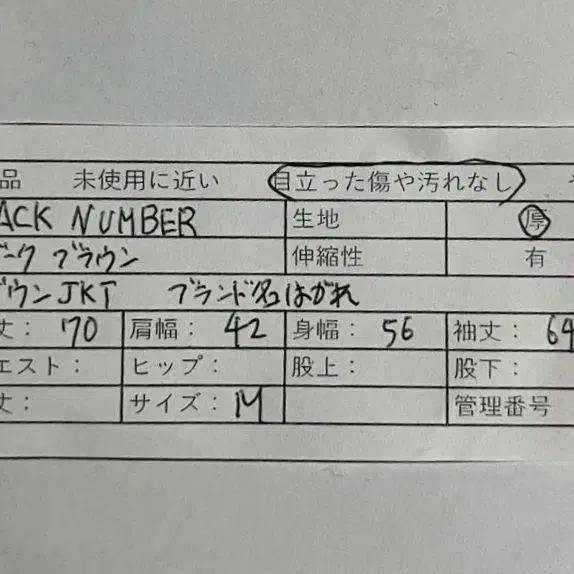 品 未使用に近い 目立った傷や汚れなし
ACK NUMBER 生地 厚
ーク ブラウン 伸縮性 有
ダウンJKT ブランド名はがれ
丈: 70 肩幅: 42 身幅: 56 袖丈: 64
エスト: ヒップ: 股上: 股下:
丈: サイズ: M 管理番号